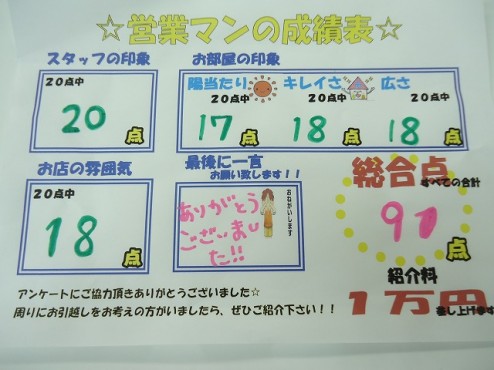 ☆営業マンの成績表☆
スタッフの印象
20点中
20点
お部屋の印象
陽当たり キレイさ 広さ
20点中 20点中 20点中
17点 18点 18点
お店の雰囲気
20点中
18点
最後に一言
お願い致します!!
ありがとう
ございまし
た!!
おねがいします
総合点
すべての合計
91点
紹介料
1万円
差し上げます
アンケートにご協力頂きありがとうございました☆
周りにお引越しをお考えの方がいましたら、ぜひご紹介下さい!!